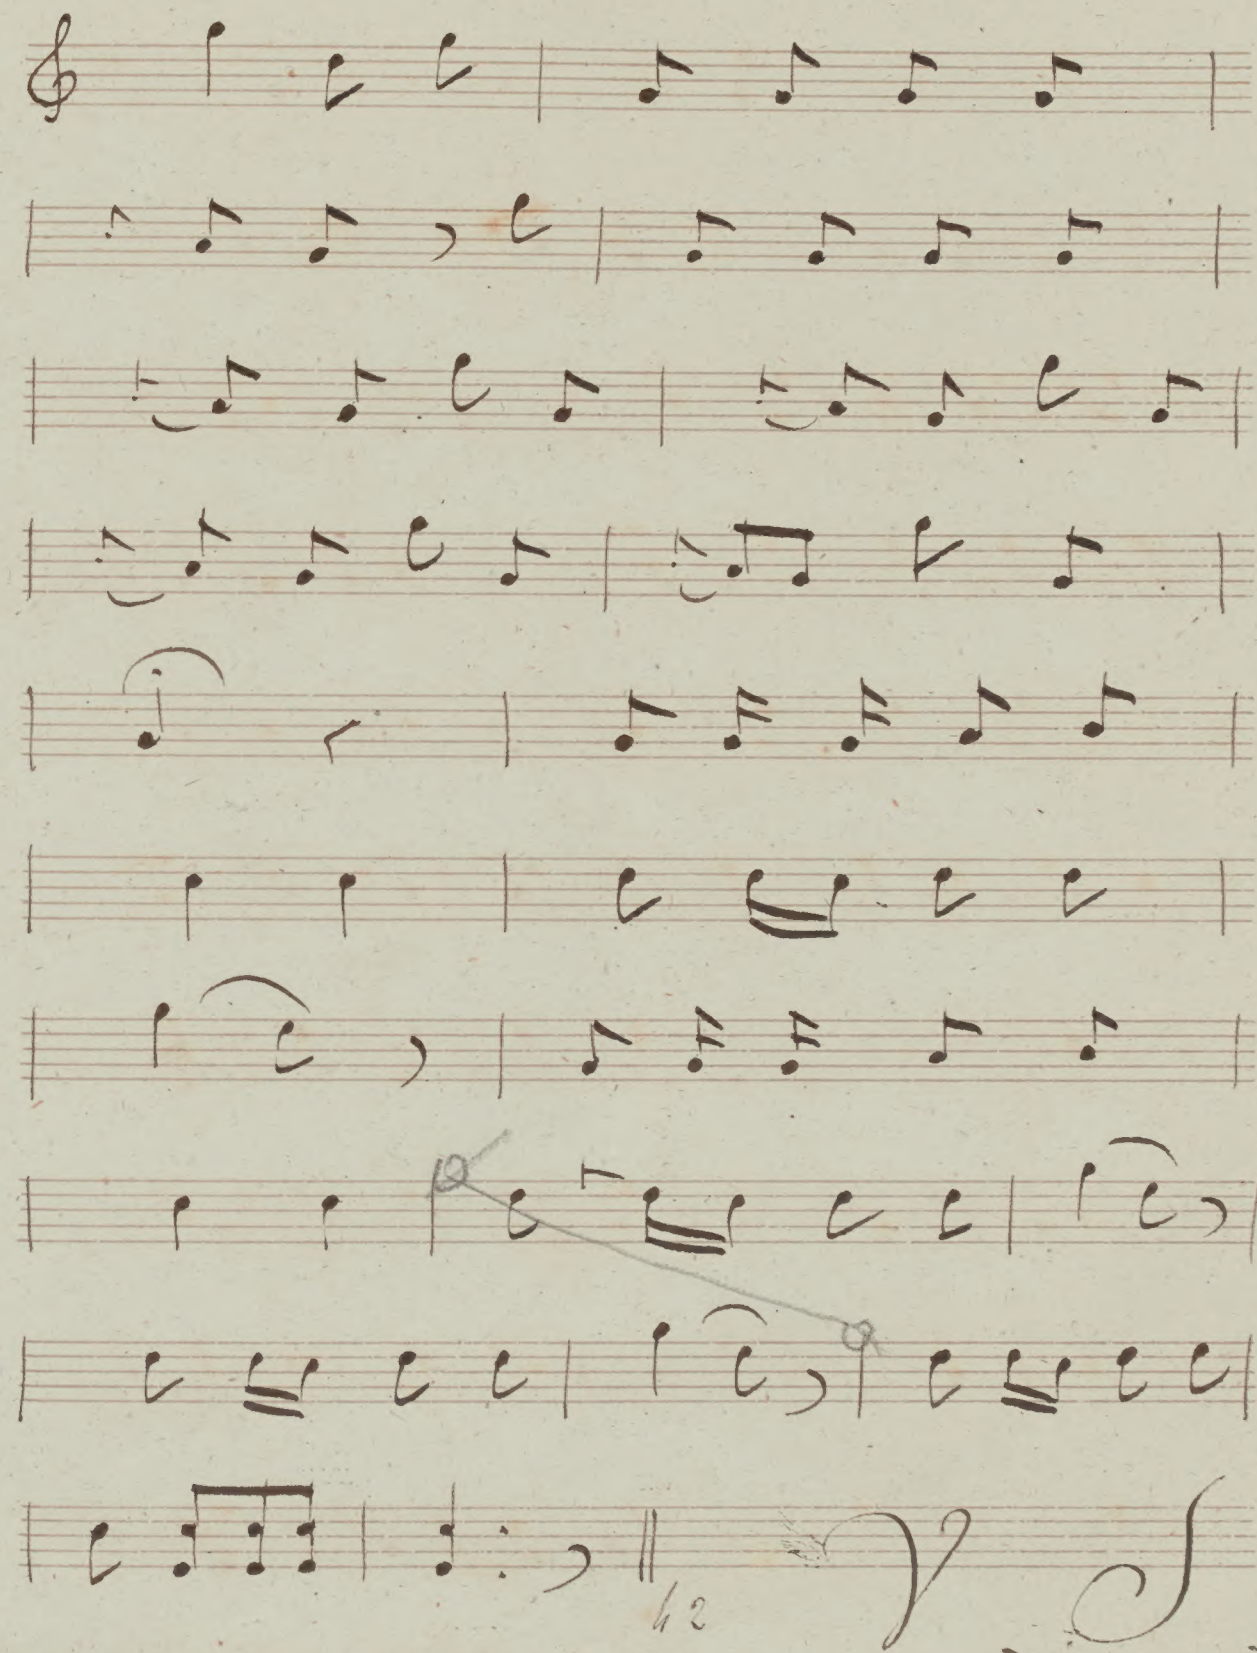 42
V S